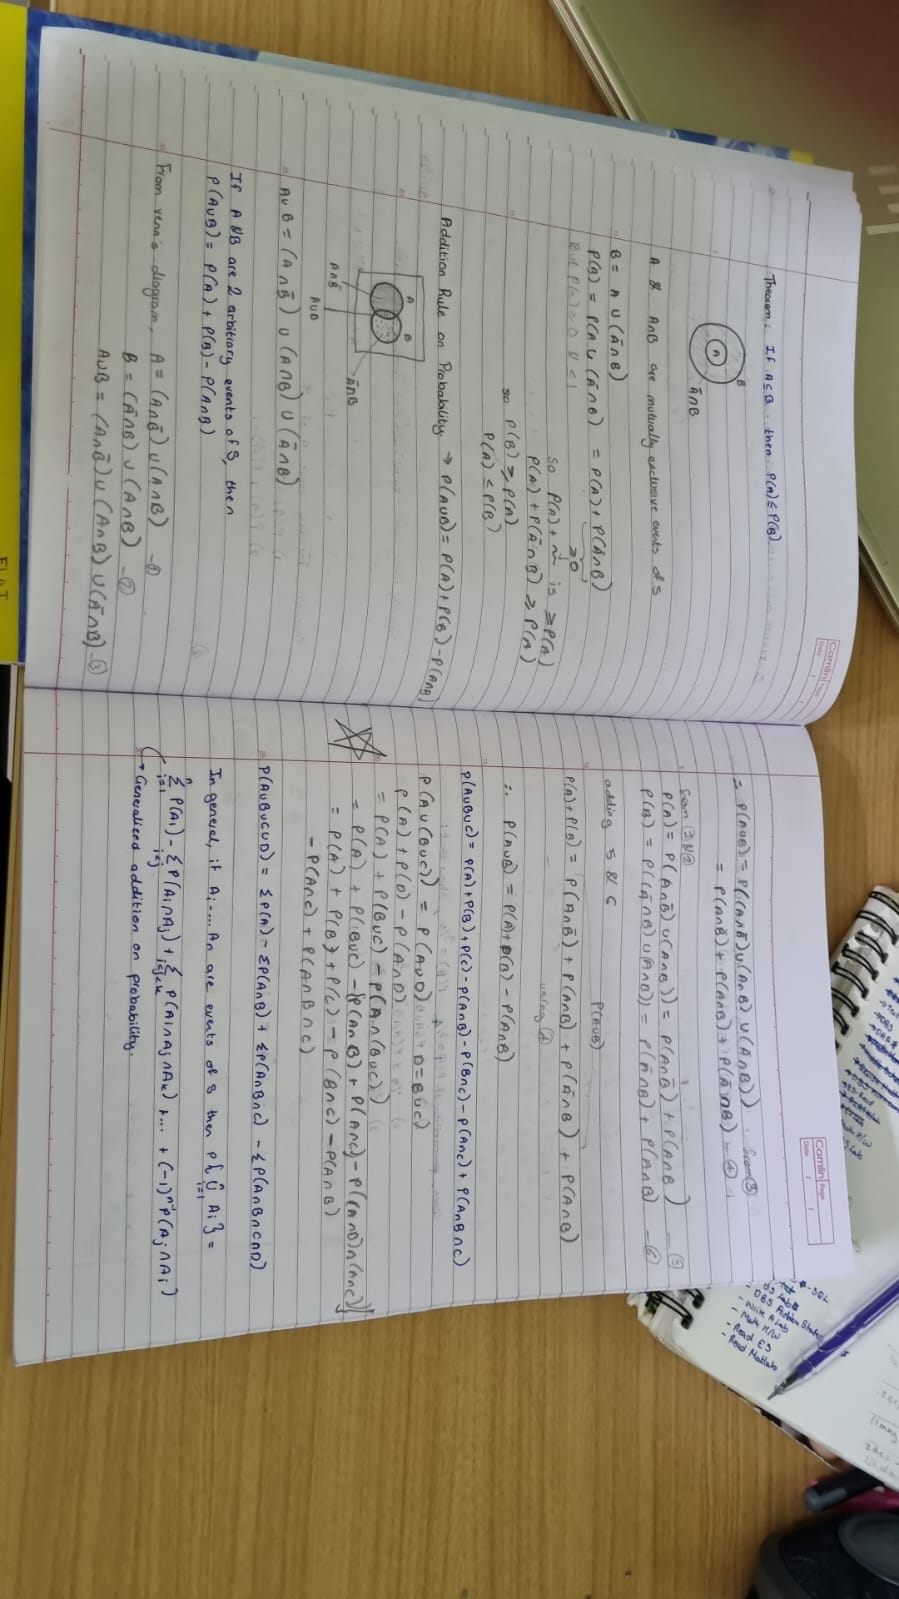 Camlin Page
Date
Theorem: If A⊂B then P(A)≤P(B)
B
A
Ā∩B
A & A∩B are mutually exclusive events of S
B = A ∪ (Ā∩B)
P(B) = P(A ∪ (Ā∩B)) = P(A) + P(Ā∩B)
≥0
But P(A) ≥ 0 & ≤ 1
So P(A) + ~ is ≥ P(A)
P(A) + P(Ā∩B) ≥ P(A)
so P(B) ≥ P(A)
P(A) ≤ P(B)
Addition Rule on Probability → P(A∪B) = P(A) + P(B) - P(A∩B)
A
B
A∩B̄
Ā∩B
A∪B
A∪B = (A∩B̄) ∪ (A∩B) ∪ (Ā∩B)
If A & B are 2 arbitrary events of S, then
P(A∪B) = P(A) + P(B) - P(A∩B)
From venn's diagram, A = (A∩B̄) ∪ (A∩B) -①
B = (Ā∩B) ∪ (A∩B) -②
A∪B = (A∩B̄) ∪ (A∩B) ∪ (Ā∩B) -③
Camlin Page
Date
∴ P(A∪B) = P((A∩B̄) ∪ (A∩B) ∪ (Ā∩B)) from ③
= P(A∩B̄) + P(A∩B) + P(Ā∩B) - ④
from ① & ②
P(A) = P(A∩B̄) ∪ (A∩B)) = P(A∩B̄) + P(A∩B) - ⑤
P(B) = P((Ā∩B) ∪ (A∩B)) = P(Ā∩B) + P(A∩B) - ⑥
adding 5 & 6
P(A∪B)
P(A) + P(B) = P(A∩B̄) + P(A∩B) + P(Ā∩B) + P(A∩B)
using ④
∴ P(A∪B) = P(A) + P(B) - P(A∩B)
P(A∪B∪C) = P(A) + P(B) + P(C) - P(A∩B) - P(B∩C) - P(A∩C) + P(A∩B∩C)
P(A∪(B∪C)) = P(A∪D) D = B∪C)
P(A) + P(D) - P(A∩D)
= P(A) + P(B∪C) - P(A∩(B∪C))
= P(A) + P(B∪C) - {P(A∩B) + P(A∩C) - P((A∩B)∩(A∩C))}
= P(A) + P(B) + P(C) - P(B∩C) - P(A∩B)
- P(A∩C) + P(A∩B∩C)
P(A∪B∪C∪D) = ΣP(A) - ΣP(A∩B) + ΣP(A∩B∩C) - ΣP(A∩B∩C∩D)
In general, if A₁.... An are events of S then P{∪ Ai} =
n
i=1
n
Σ P(Ai) - Σ P(Ai∩Aj) + Σ P(Ai∩Aj∩Ak) + .... + (-1)ⁿ⁻¹ P(Aj∩Ai)
i=1 i<j i<j<k
→ Generalised addition on probability.
- SQL
- DBS Problem State
- Write A Lab
- Math H/W
- Read ES
- Read Matlab
FLAT